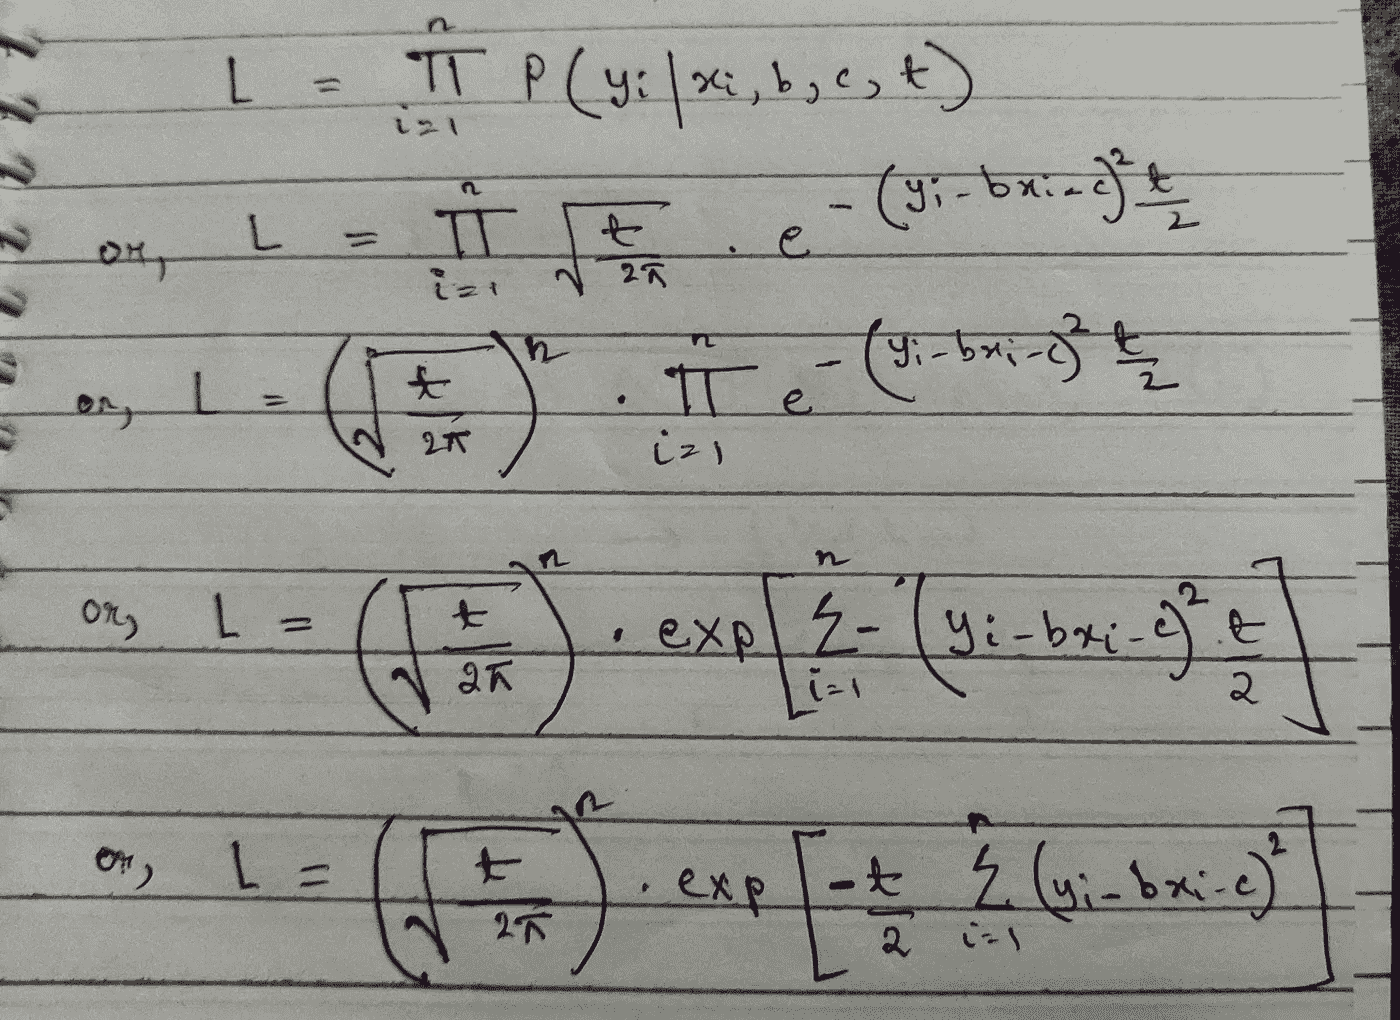 L = ∏_{i=1}^{n} P(y_i | x_i, b, c, t)
or, L = ∏_{i=1}^{n} √(t/2π) · e^{-(y_i - bx_i - c)^2 t/2}
or, L = (√(t/2π))^n · ∏_{i=1}^{n} e^{-(y_i - bx_i - c)^2 t/2}
or, L = (√(t/2π))^n · exp[∑_{i=1}^{n} -(y_i - bx_i - c)^2 · t/2]
or, L = (√(t/2π))^n · exp[-t/2 ∑_{i=1}^{n} (y_i - bx_i - c)^2]